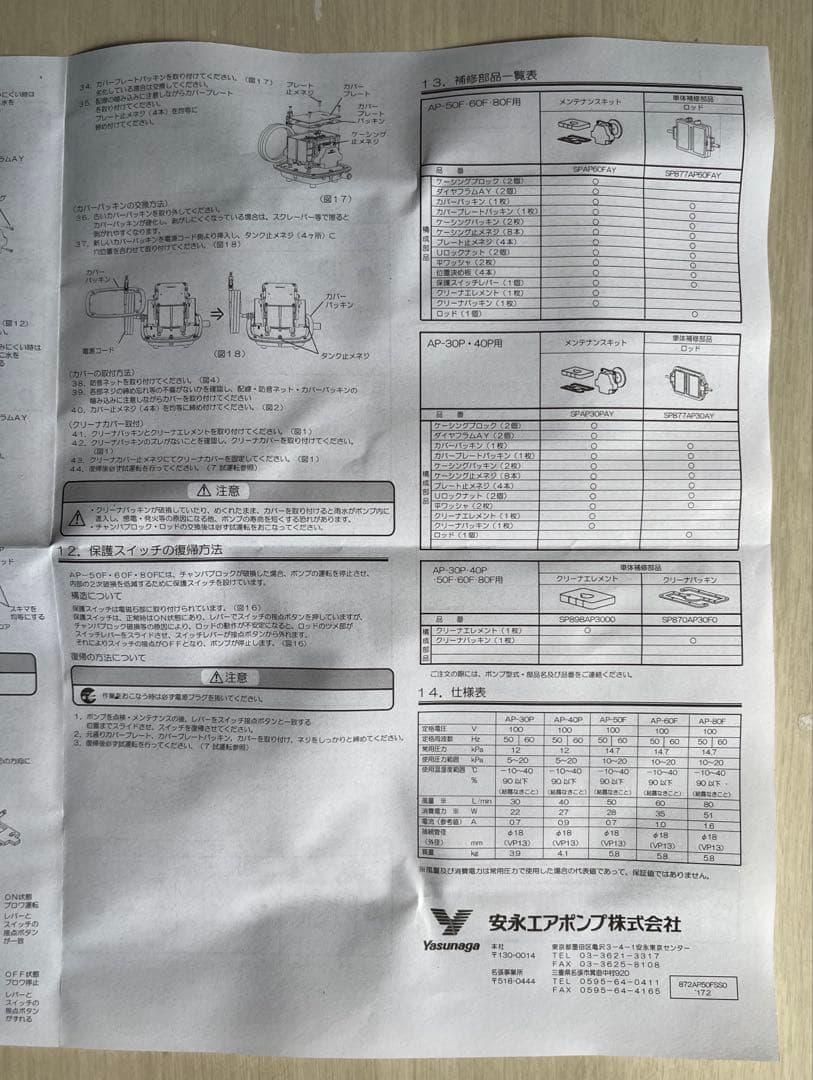 にくい時は
水を
ラムＡＹ
グ
（図１２）
みにくい時は
に水を
る
ラムＡＹ
ッド
スキマを
均等にする
コア
の方向に
ＯＮ状態
ブロワ運転
レバーと
スイッチの
接点ボタン
が一致
ＯＦＦ状態
ブロワ停止
レバーと
スイッチの
接点ボタン
がずれる
３４．カバープレートパッキンを取り付けてください。（図１７）
劣化している場合は交換してください。
３５．配線の噛み込みに注意しながらカバープレート
を取り付けてください。
プレート止メネジ（４本）を均等に
締め付けてください。
プレート
止メネジ
カバー
プレート
カバー
プレート
パッキン
ケーシング
止メネジ
（図１７）
（カバーパッキンの交換方法）
３６．古いカバーパッキンを取り外してください。
カバーパッキンが硬化し、あがしにくくなっている場合は、スクレーパー等で擦ると
剥がれやすくなります。
３７．新しいカバーパッキンを電源コード側より挿入し、タンク止メネジ（４ヶ所）に
穴位置を合わせて取り付けてください。（図１８）
カバー
パッキン
カバー
パッキン
電源コード
（図１８）
タンク止メネジ
（カバーの取付方法）
３８．防音ネットを取り付けてください。（図４）
３９．各部ネジの締め忘れ等の不備がないかを確認し、配線・防音ネット・カバーパッキンの
噛み込みに注意しながらカバーを取り付けてください
４０．カバー止メネジ（４本）を均等に締め付けてください。（図２）
（クリーナカバー取付）
４１．クリーナパッキンとクリーナエレメントを取り付けてください。（図１）
４２．クリーナパッキンのズレがないことを確認し、クリーナカバーを取り付けてください。
（図１）
４３．クリーナカバー止メネジにてクリーナカバーを固定してください。（図１）
４４．復帰後必ず試運転を行ってください。（７ 試運転参照）
注意
・クリーナパッキンが破損していたり、めくれたまま、カバーを取り付けると雨水がポンプ内に
進入し、感電・発火等の原因になる他、ポンプの寿命を短くする恐れがあります。
・チャンバブロック・ロッドの交換後は必ず試運転をおこなってください。
１２．保護スイッチの復帰方法
ＡＰ－５０Ｆ・６０Ｆ・８０Ｆには、チャンバブロックが破損した場合、ポンプの運転を停止させ、
内部の２次破損を低減するために保護スイッチを設けています。
構造について
保護スイッチは電磁石部に取り付けられています。（図１６）
保護スイッチは、正常時はＯＮ状態にあり、レバーでスイッチの接点ボタンを押していますが、
チャンバブロック破損等の原因により、ロッドの動作が不安定になると、ロッドのツメ部が
スイッチレバーをスライドさせ、スイッチレバーが接点ボタンから外れます。
それによりスイッチの接点がＯＦＦとなり、ポンプが停止します。（図１６）
復帰の方法について
注意
作業をおこなう時は必ず電源プラグを抜いてください。
１．ポンプを点検・メンテナンスの後、レバーをスイッチ接点ボタンと一致する
位置までスライドさせ、スイッチを復帰させてください。
２．元通りカバープレート、カバープレートパッキン、カバーを取り付け、ネジをしっかりと締めてください。
３．復帰後必ず試運転を行ってください。（７ 試運転参照）
１３．補修部品一覧表
AP-50F・60F・80F用 メンテナンスキット 単体補修部品 ロッド
品 番 SPAP60FAY SP877AP50FAY
構成部品
ケーシングブロック（２個） ○
ダイヤフラムＡＹ（２個） ○
カバーパッキン（１枚） ○ ○
カバープレートパッキン（１枚） ○ ○
ケーシングパッキン（２枚） ○ ○
ケーシング止メネジ（８本） ○ ○
プレート止メネジ（４本） ○ ○
Ｕロックナット（２個） ○ ○
平ワッシャ（２枚） ○ ○
位置決め板（４本） ○ ○
保護スイッチレバー（１個） ○ ○
クリーナエレメント（１枚） ○
クリーナパッキン（１枚） ○
ロッド（１個） ○
AP-30P・40P用 メンテナンスキット 単体補修部品 ロッド
品 番 SPAP30PAY SP877AP30AY
構成部品
ケーシングブロック（２個） ○
ダイヤフラムＡＹ（２個） ○
カバーパッキン（１枚） ○ ○
カバープレートパッキン（１枚） ○ ○
ケーシングパッキン（２枚） ○ ○
ケーシング止メネジ（８本） ○ ○
プレート止メネジ（４本） ○ ○
Ｕロックナット（２個） ○ ○
平ワッシャ（２枚） ○ ○
クリーナエレメント（１枚） ○
クリーナパッキン（１枚） ○
ロッド（１個） ○
AP-30P・40P
・50F・60F・80F用
単体補修部品
クリーナエレメント クリーナパッキン
品 番 SP898AP3000 SP870AP30F0
構成部品
クリーナエレメント（１枚） ○
クリーナパッキン（１枚） ○
ご注文の際には、ポンプ型式・部品名及び品番をご連絡ください。
１４．仕様表
AP-30P AP-40P AP-50F AP-60F AP-80F
定格電圧 V 100 100 100 100 100
定格周波数 Hz 50 60 50 60 50 60 50 60 50 60
常用圧力 kPa 12 12 14.7 14.7 14.7
使用圧力範囲 kPa 5～20 5～20 10～20 10～20 10～20
使用温湿度範囲 ℃ －10～40 －10～40 －10～40 －10～40 －10～40
% 90 以下 90 以下 90 以下 90 以下 90 以下
（結露なきこと） （結露なきこと） （結露なきこと） （結露なきこと） （結露なきこと）
風量 ※ L／min 30 40 50 60 80
消費電力 ※ W 22 27 28 35 51
電流（参考値） A 0.7 0.9 0.7 1.0 1.6
接続管径 φ18 φ18 φ18 φ18 φ18
（外径） mm （VP13） （VP13） （VP13） （VP13） （VP13）
質量 kg 3.9 4.1 5.8 5.8 5.8
※風量及び消費電力は常用圧力で使用した場合の代表値であって、保証値ではありません。
Yasunaga
安永エアポンプ株式会社
本社 東京都墨田区亀沢３－４－１安永東京センター
〒130-0014 TEL 03-3621-3317
FAX 03-3625-8108
名張事業所 三重県名張市箕曲中村920
〒518-0444 TEL 0595-64-0411
FAX 0595-64-4165
872AP50FSS0
'17.2